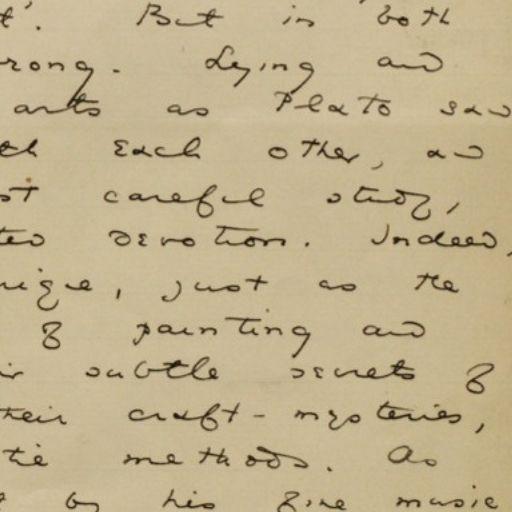 t'. But in both
rong. Lying and
arts as Plato saw
ch each other, and
st careful study,
ted devotion. Indeed,
nique, just as the
of painting and
ir subtle secrets of
their craft-mysteries,
tic methods. As
by his fine music